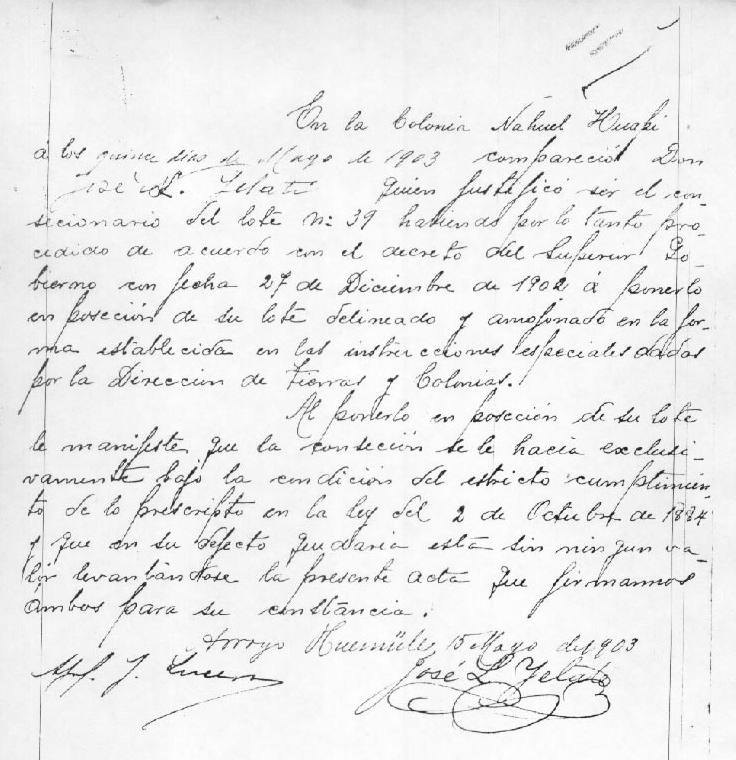 En la Colonia Nahuel Huapi
á los quince dias de Mayo de 1903 compareció Don
José L. quien justificó ser el con-
secionario del lote Nº 39 habiendo por lo tanto pro-
cedido de acuerdo con el decreto del Superior Go-
bierno con fecha 27 de Diciembre de 1902 á ponerlo
en poseción de su lote delineado y amojonado en la for-
ma establecida en las instrucciones especiales dadas
por la Direccion de Tierras y Colonias.
Al ponerlo en poseción de su lote
le manifeste que la conseción se le hacia exclusi-
vamente bajo la condición del estricto cumplimien-
to de lo prescripto en la ley del 2 de Octubre de 1884
y que en su defecto quedaria esta sin ningun va-
lor levantándose la presente acta que firmamos
ámbos para su constáncia.
Arroyo Huemúles, 15 Mayo de 1903
José L.